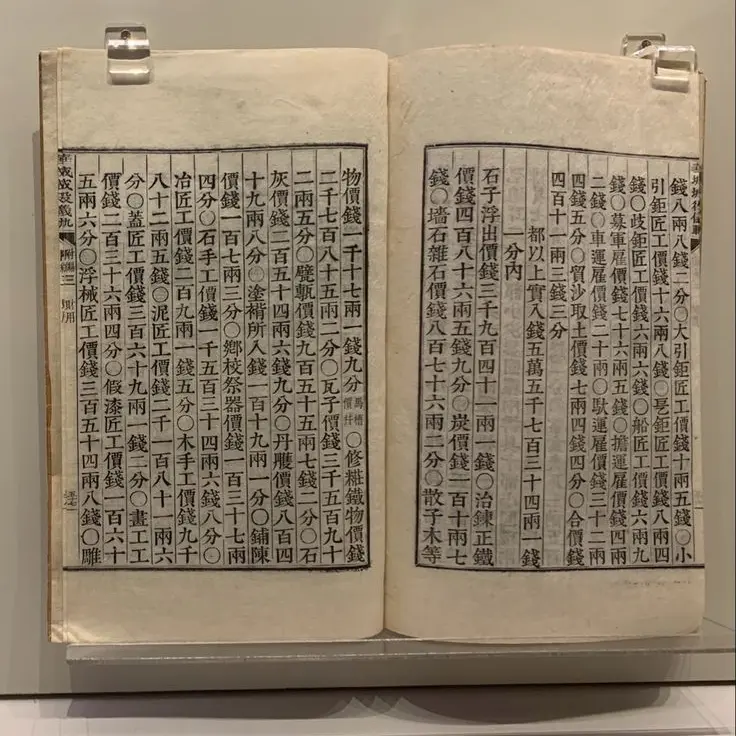 華城城役儀軌
錢八兩八錢二分○大引鉅匠工價錢十兩五錢○小
引鉅匠工價錢十六兩八錢○乬鉅匠工價錢八兩四
錢○歧鉅匠工價錢六兩六錢○船匠工價錢六兩九
錢○募軍雇價錢七十六兩五錢○擔運雇價錢四兩
二錢○車運雇價錢二十兩○馱運雇價錢三十二兩
四錢五分○貿沙取土價錢七兩四錢四分○合價錢
四百十一兩三錢三分
都以上實入錢五萬五千七百三十四兩一錢
一分內
石子浮出價錢三千九百四十一兩一錢○冶鍊正鐵
價錢四百八十六兩五錢九分○炭價錢一百十兩七
錢○墻石雜石價錢八百七十六兩二分○散子木等
物價錢一千十七兩一錢九分馬槽價幷○修粧鐵物價錢
二千七百八十五兩二分○瓦子價錢三千五百九十
二兩五分○甓甎價錢九百五十五兩七錢二分○石
灰價錢二百五十四兩六錢九分○丹雘價錢八百四
十九兩八分○塗褙所入錢一百十九兩一分○鋪陳
價錢一百七兩三分○鄕校祭器價錢一百三十七兩
四分○石手工價錢一千五百三十四兩六錢八分○
冶匠工價錢二百九兩一錢五分○木手工價錢九千
八十二兩五錢○泥匠工價錢二千一百八十一兩六
分○蓋匠工價錢三百六十九兩一錢二分○畫工工
價錢二百三十六兩四分○假漆匠工價錢一百六十
五兩六分○浮械匠工價錢三百五十四兩八錢○雕
華城城役儀軌 附編三 財用